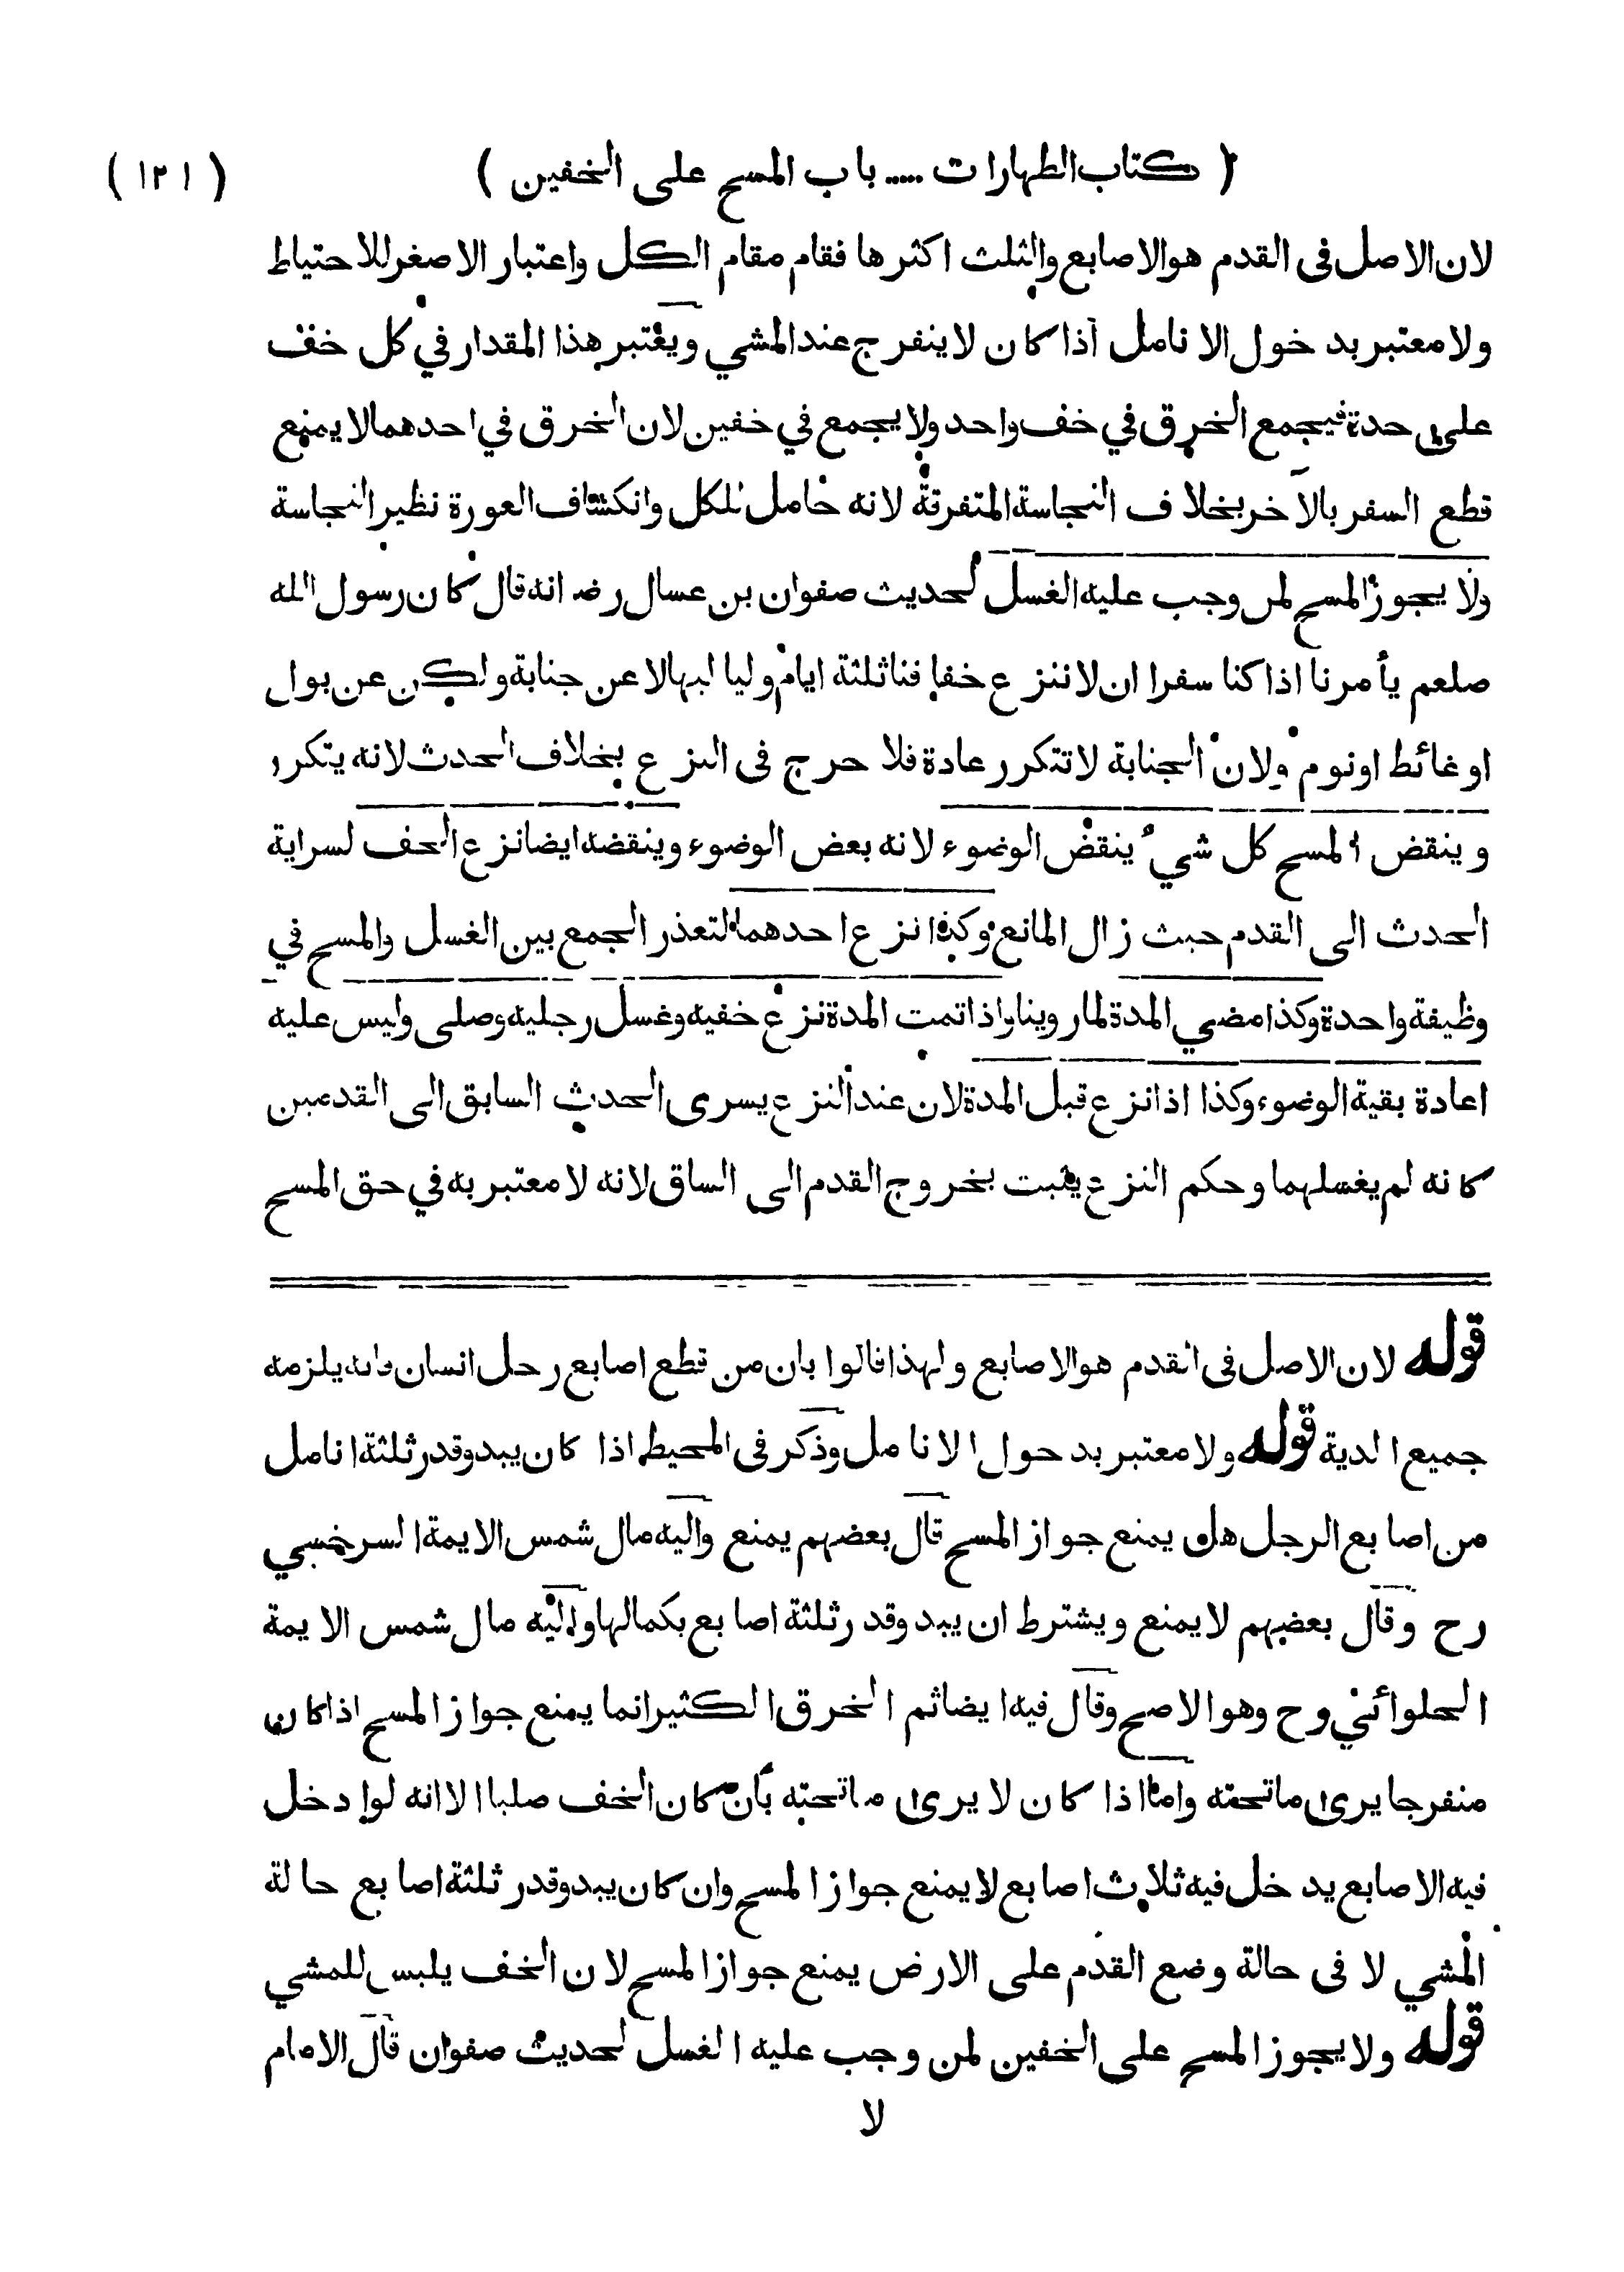 ( كتاب الطهارات ..... باب المسح على الخفين ) ( ١٢١ )
لان الاصل فى القدم هو الاصابع والثلث اكثرها فقام مقام الكل واعتبار الاصغر للاحتياط
ولا معتبر بدخول الانامل اذا كان لا ينفرج عند المشي ويعتبر هذا المقدار في كل خف
على حدة فيجمع الخرق في خف واحد ولا يجمع في خفين لان الخرق في احدهما لا يمنع
قطع السفر بالآخر بخلاف النجاسة المتفرقة لانه حامل للكل وانكشاف العورة نظير النجاسة
ولا يجوز المسح لمن وجب عليه الغسل لحديث صفوان بن عسال رضـ انه قال كان رسول الله
صلعم يأمرنا اذا كنا سفرا ان لا ننزع خفافنا ثلثة ايام ولياليها الا عن جنابة ولكن عن بول
او غائط او نوم ولان الجنابة لا تتكرر عادة فلا حرج فى النزع بخلاف الحدث لانه يتكرر
وينقض المسح كل شيء ينقض الوضوء لانه بعض الوضوء وينقضه ايضا نزع الخف لسراية
الحدث الى القدم حيث زال المانع وكذا نزع احدهما لتعذر الجمع بين الغسل والمسح في
وظيفة واحدة وكذا مضي المدة لما روينا واذا تمت المدة نزع خفيه وغسل رجليه وصلى وليس عليه
اعادة بقية الوضوء وكذا اذا نزع قبل المدة لان عند النزع يسرى الحدث السابق الى القدمين
كانه لم يغسلهما وحكم النزع يثبت بخروج القدم الى الساق لانه لا معتبر به في حق المسح
قوله لان الاصل فى القدم هو الاصابع ولهذا قالوا بان من قطع اصابع رجل انسان فانه يلزمه
جميع الدية قوله ولا معتبر بدخول الانامل وذكر فى المحيط اذا كان يبدو قدر ثلثة انامل
من اصابع الرجل هل يمنع جواز المسح قال بعضهم يمنع واليه مال شمس الايمة السرخسي
رح وقال بعضهم لا يمنع ويشترط ان يبدو قدر ثلثة اصابع بكمالها واليه مال شمس الايمة
الحلوائي رح وهو الاصح وقال فيه ايضا ثم الخرق الكثير انما يمنع جواز المسح اذا كان
منفرجا يرى ما تحته واما اذا كان لا يرى ما تحته بأن كان الخف صلبا الا انه لو ادخل
فيه الاصابع يدخل فيه ثلاث اصابع لا يمنع جواز المسح وان كان يبدو قدر ثلثة اصابع حالة
المشي لا فى حالة وضع القدم على الارض يمنع جواز المسح لان الخف يلبس للمشي
قوله ولا يجوز المسح على الخفين لمن وجب عليه الغسل لحديث صفوان قال الامام
لا